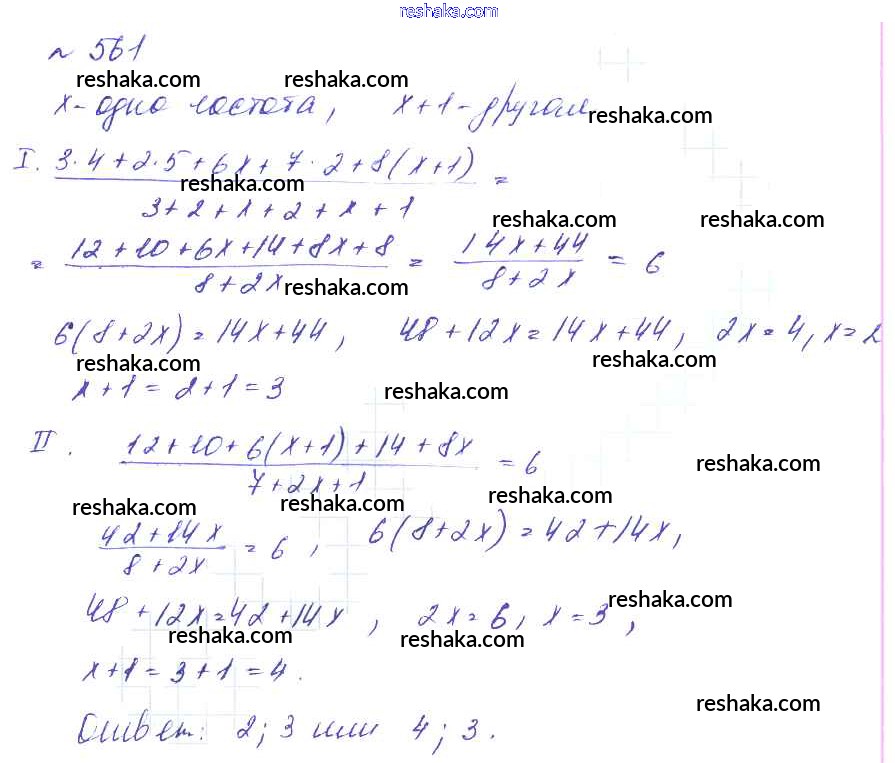 reshaka.com
№ 561
reshaka.com reshaka.com
x - одна частота, x+1 - другая reshaka.com
I. (3·4+2·5+6x+7·2+8(x+1))/(3+2+x+2+x+1) =
reshaka.com
reshaka.com reshaka.com
= (12+10+6x+14+8x+8)/(8+2x) = (14x+44)/(8+2x) = 6
reshaka.com
6(8+2x) = 14x+44, 48+12x = 14x+44, 2x=4, x=2
reshaka.com reshaka.com
x+1 = 2+1 = 3 reshaka.com
II. (12+10+6(x+1)+14+8x)/(7+2x+1) = 6
reshaka.com
reshaka.com reshaka.com reshaka.com
(42+14x)/(8+2x) = 6, 6(8+2x) = 42+14x,
reshaka.com
48+12x=42+14x, 2x=6, x=3,
reshaka.com reshaka.com
x+1 = 3+1 = 4.
reshaka.com
Ответ: 2; 3 или 4; 3.